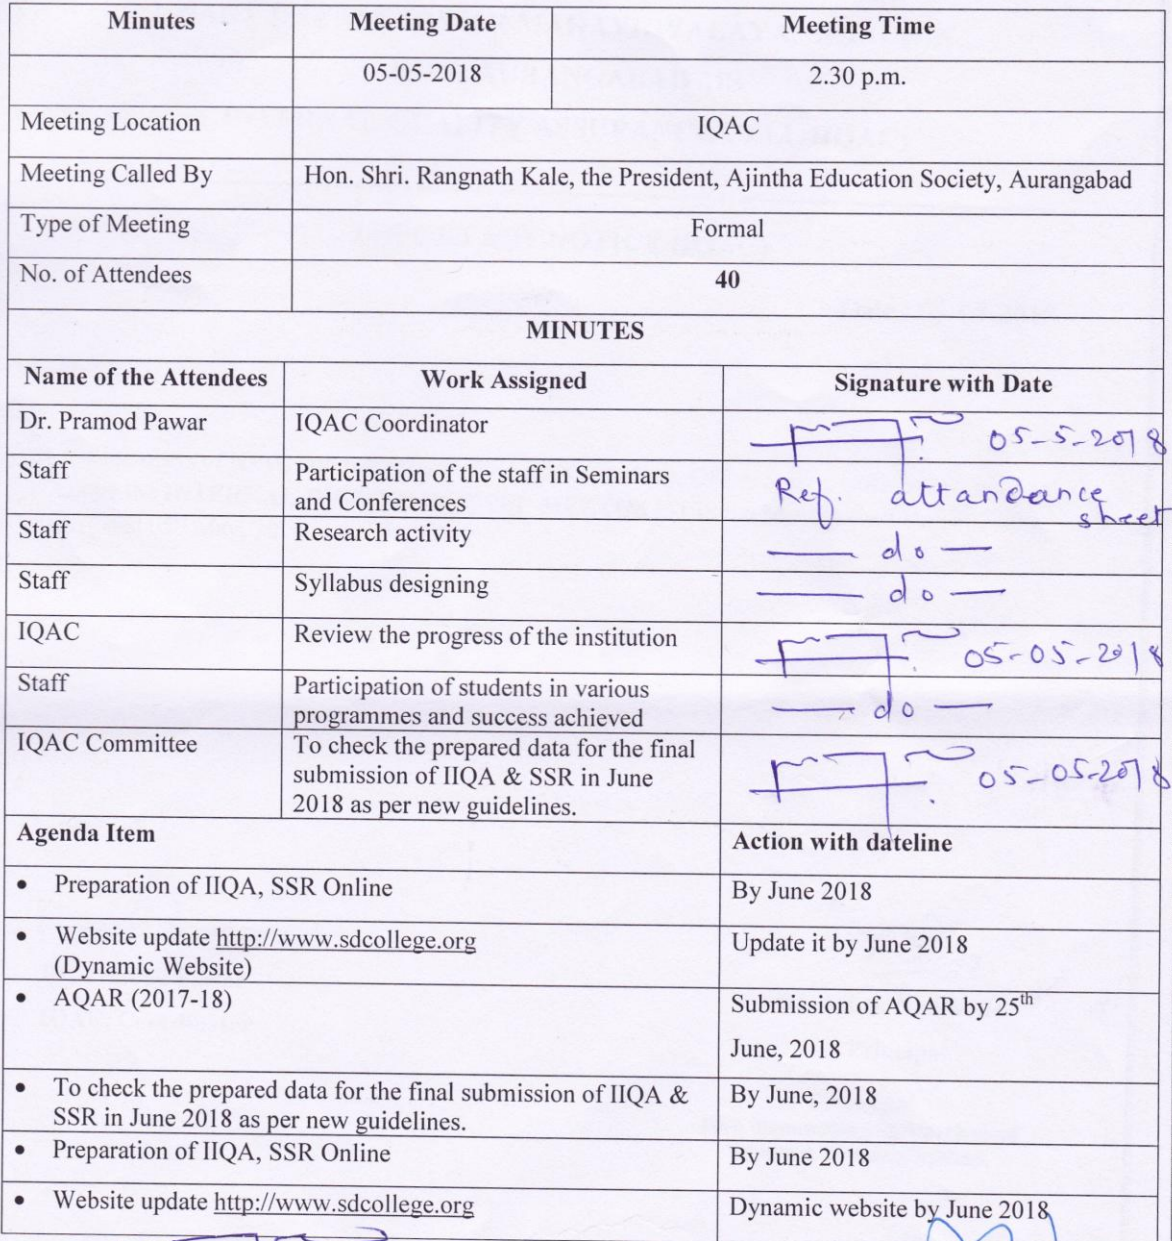 Minutes Meeting Date Meeting Time
05-05-2018 2.30 p.m.
Meeting Location IQAC
Meeting Called By Hon. Shri. Rangnath Kale, the President, Ajintha Education Society, Aurangabad
Type of Meeting Formal
No. of Attendees 40
MINUTES
Name of the Attendees Work Assigned Signature with Date
Dr. Pramod Pawar IQAC Coordinator 05-5-2018
Staff Participation of the staff in Seminars
and Conferences
Ref. attandance
sheet
Staff Research activity — do —
Staff Syllabus designing — do —
IQAC Review the progress of the institution 05-05-2018
Staff Participation of students in various
programmes and success achieved
— do —
IQAC Committee To check the prepared data for the final
submission of IIQA & SSR in June
2018 as per new guidelines.
05-05-2018
Agenda Item Action with dateline
• Preparation of IIQA, SSR Online By June 2018
• Website update http://www.sdcollege.org Update it by June 2018
(Dynamic Website)
• AQAR (2017-18) Submission of AQAR by 25th
June, 2018
• To check the prepared data for the final submission of IIQA & By June, 2018
SSR in June 2018 as per new guidelines.
• Preparation of IIQA, SSR Online By June 2018
• Website update http://www.sdcollege.org Dynamic website by June 2018